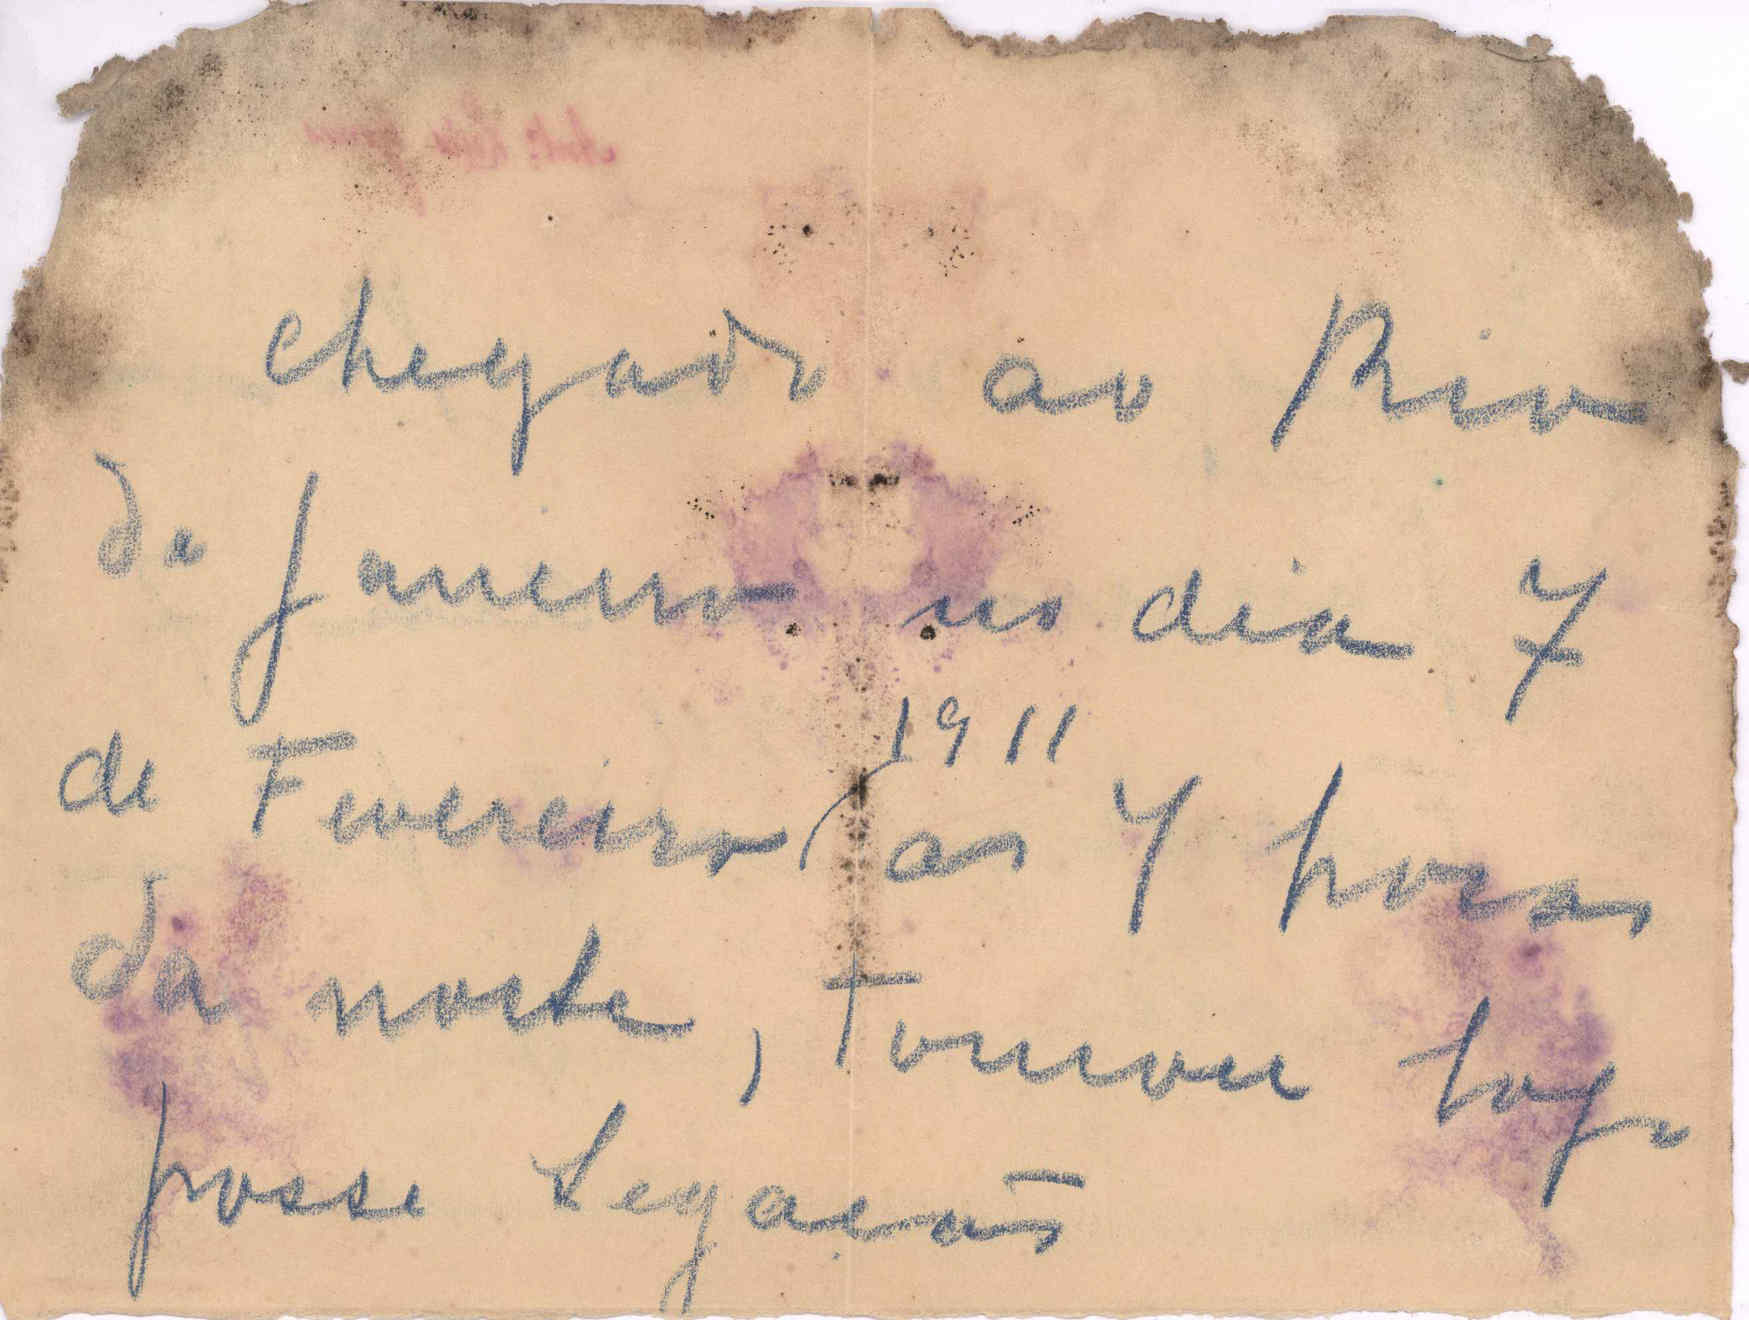 chegado ao Rio
de Janeiro no dia 7
1911
de Fevereiro as 7 horas
da noite, Tomou logo
posse Legacão